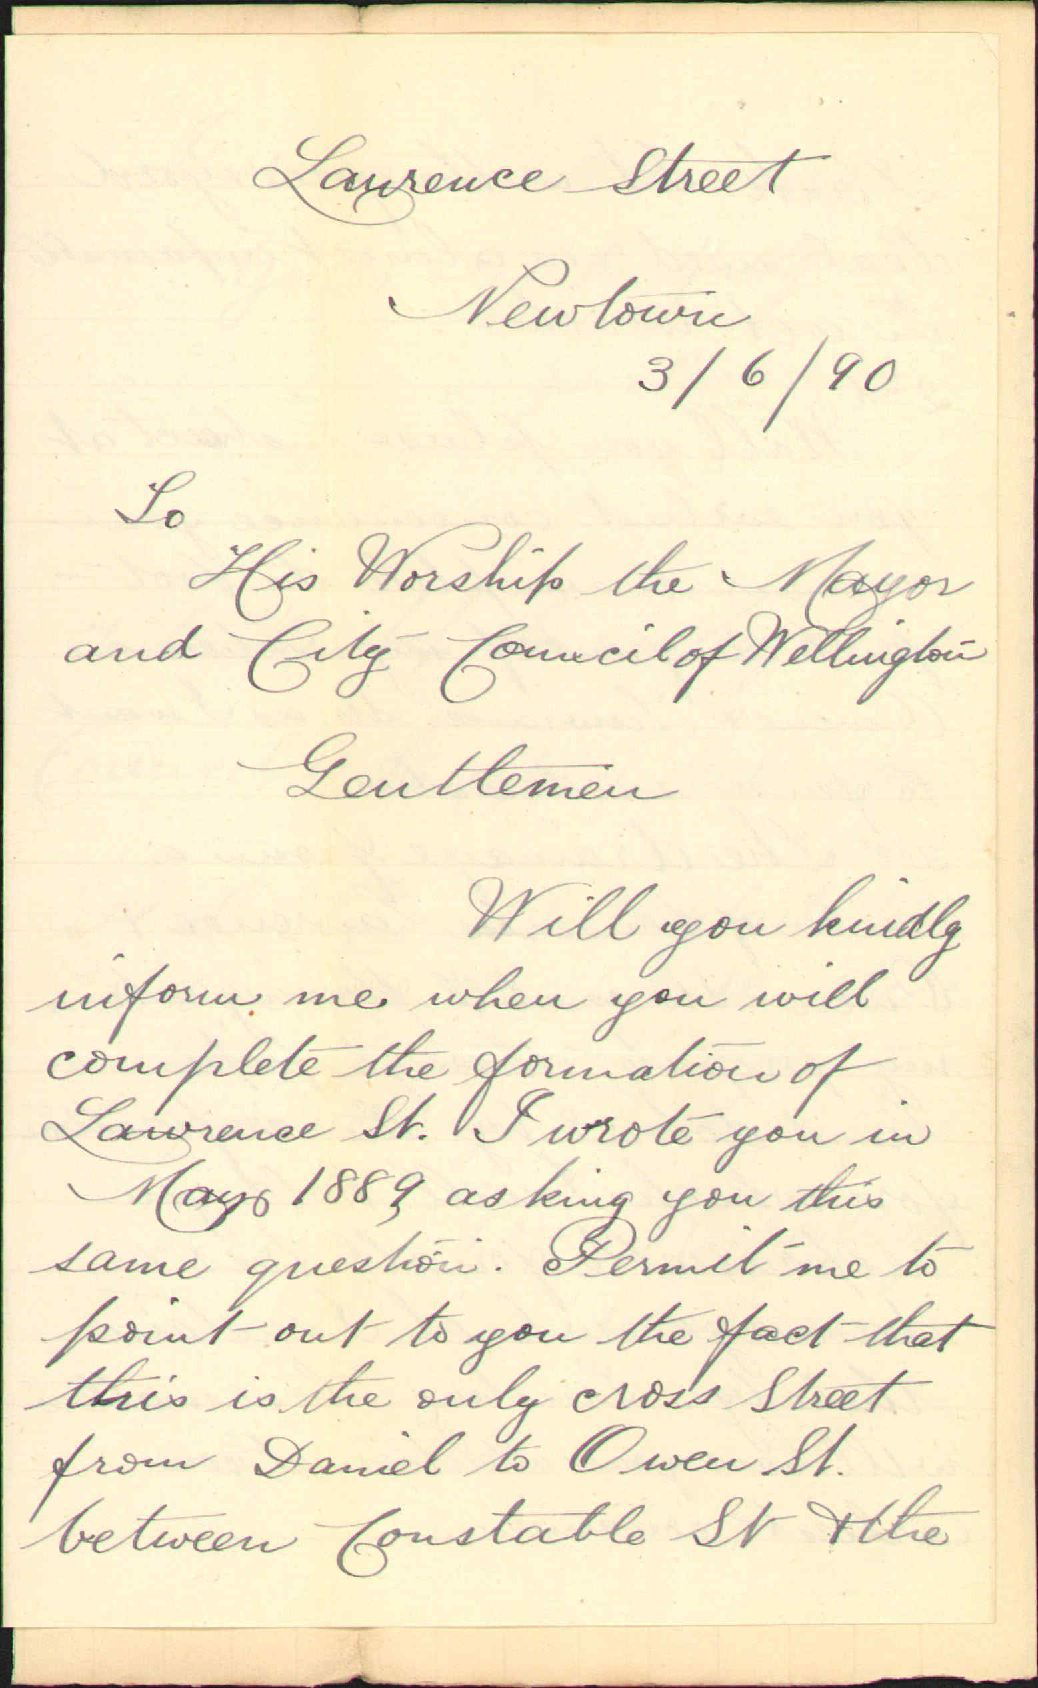 Lawrence Street
Newtown
3/6/90
To
His Worship the Mayor
and City Council of Wellington
Gentlemen
Will you kindly
inform me when you will
complete the formation of
Lawrence St. I wrote you in
May 1889 asking you this
same question. Permit me to
point out to you the fact that
this is the only cross Street
from Daniel to Owen St.
between Constable St & the